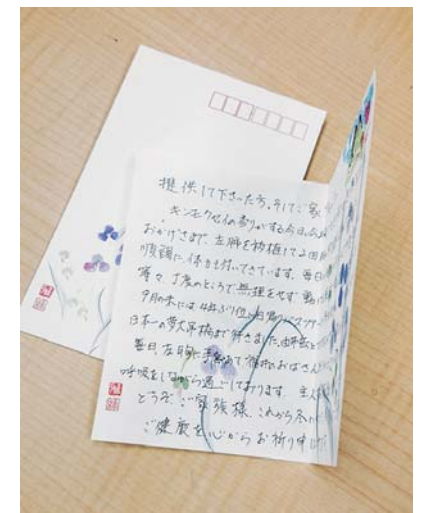 提供して下さった方、そしてご家
キンモクセイの香りがする今日
おかげさまで、左肺を移植して2回
順調に、体力も付いてきています。毎日
等々、丁度のところで無理をせず、動
9月の末には4年ぶり位に日帰り
日本一の夢大吊橋まで行きました。
毎日左胸に手をあておばさん
呼吸をしながら過ごしております。主人
どうぞ、ご家族様、これから冬
ご健康を心からお祈り申し